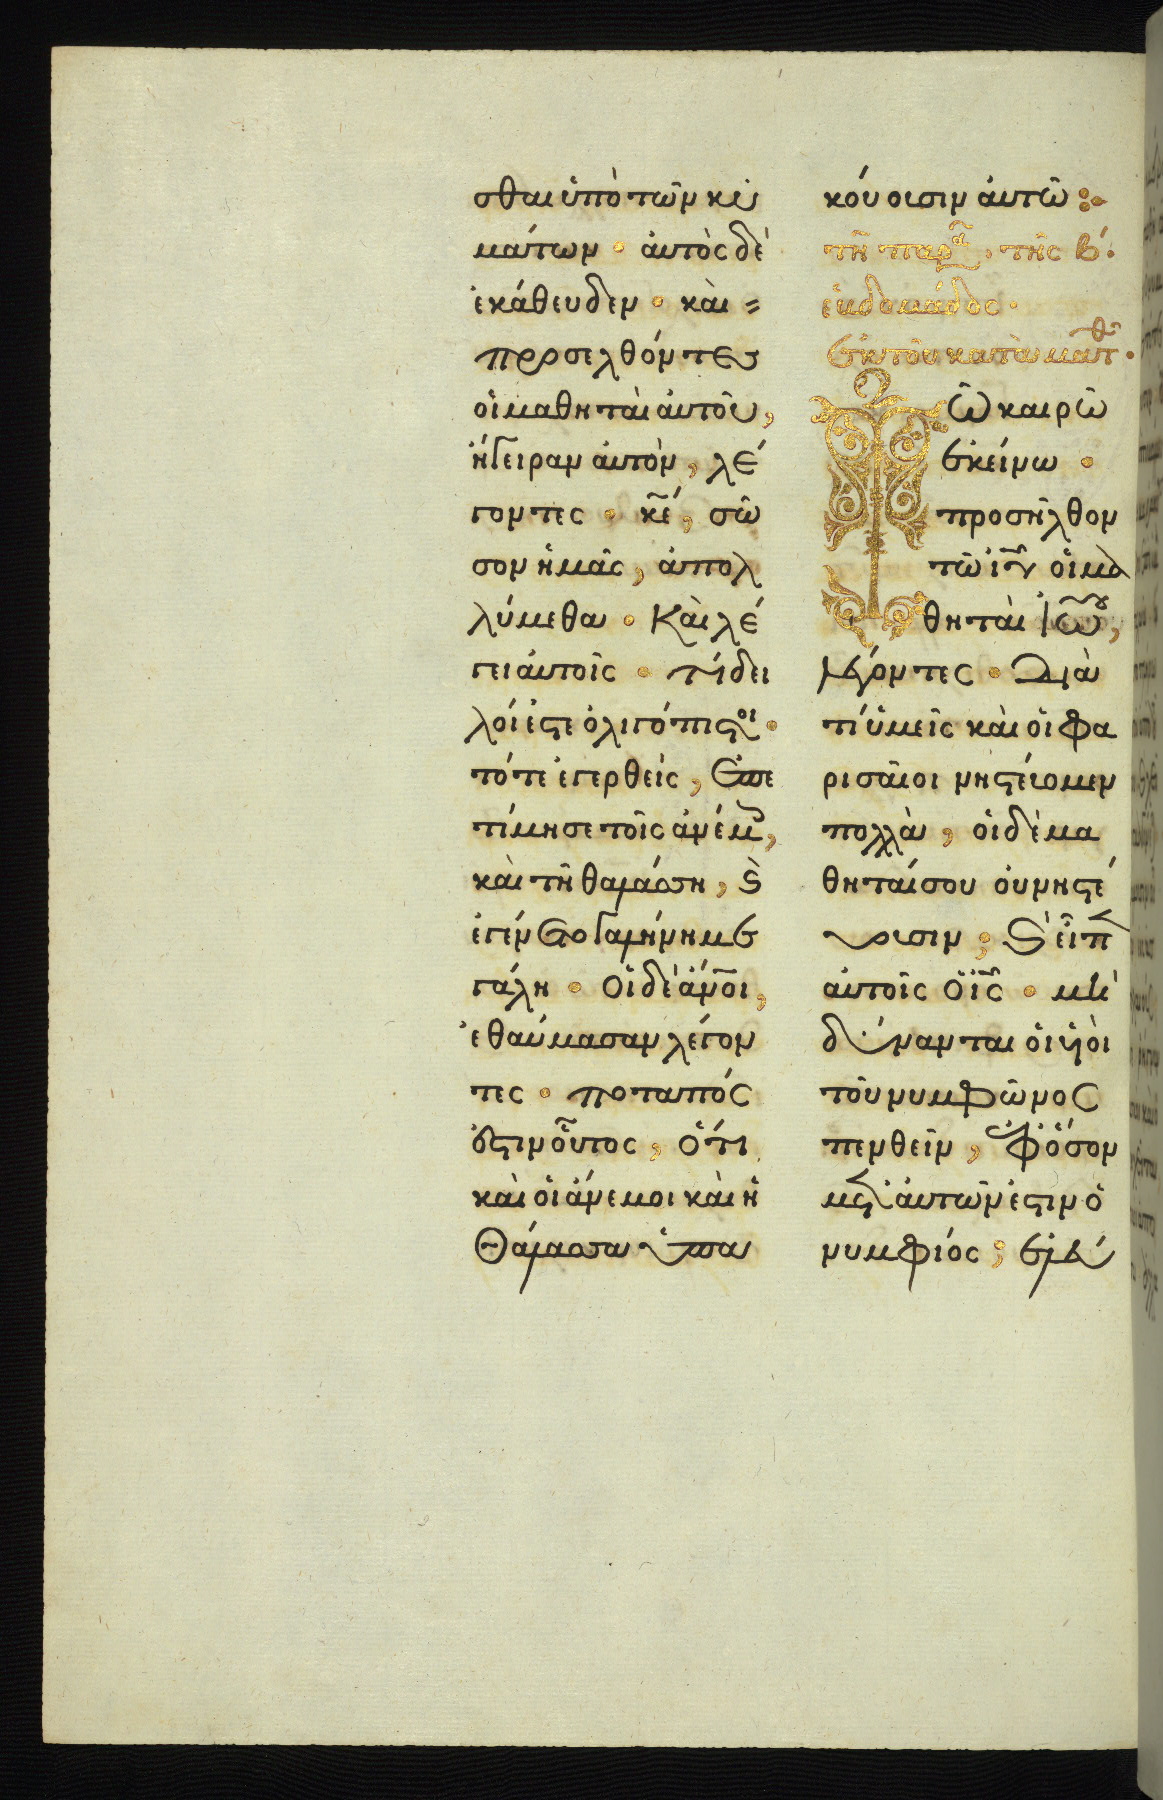 σθαι ὑπὸ τῶν κυ
μάτων · ἀυτὸς δὲ
ἐκάθευδεν · καὶ =
προσελθόντες
οἱ μαθηταὶ ἀυτοῦ,
ἤγειραν ἀυτὸν, λέ
γοντες · κ̅ε̅, σῶ
σον ἡμᾶς, ἀπολ
λύμεθα · Καὶ λέ
γει ἀυτοῖς · τί δει
λοί ἐστε ὀλιγόπιστοι ·
τότε ἐγερθεὶς, ἐπε
τίμησε τοῖς ἀνέμοις,
καὶ τῆ θαλάσση, καὶ
ἐγένετο γαλήνη με
γάλη · Οἱ δὲ ἄν̅οι,
ἐθαύμασαν λέγον
τες · ποταπός
ἐστιν οὗτος, ὅτι
καὶ οἱ ἄνεμοι καὶ ἡ
Θάλασσα ὑπα
κόυουσιν ἀυτῶ :
τῆ παρα · τῆς β ·
ἑβδομάδος ·
ἐκ τοῦ κατὰ ματθ ·
Τῶ καιρῶ
ἐκείνω ·
προσῆλθον
τῶ ἰ̅υ̅ οἱ μα
θηταὶ Ἰω̅ου,
λέγοντες · Διὰ
τί ἡμεῖς καὶ οἱ φα
ρισαῖοι νηστέυομεν
πολλὰ, οἱ δὲ μα
θηταί σου ὀυ νηστέ
υουσιν ; καὶ εἶπεν
ἀυτοῖς ὁ ἰ̅ς̅ · μὴ
δύνανται οἱ υἱοὶ
τοῦ νυμφῶνος
πενθεῖν, ἐφ' ὅσον
μετ' ἀυτῶν ἐστιν ὁ
νυμφίος ; ἐλέυ